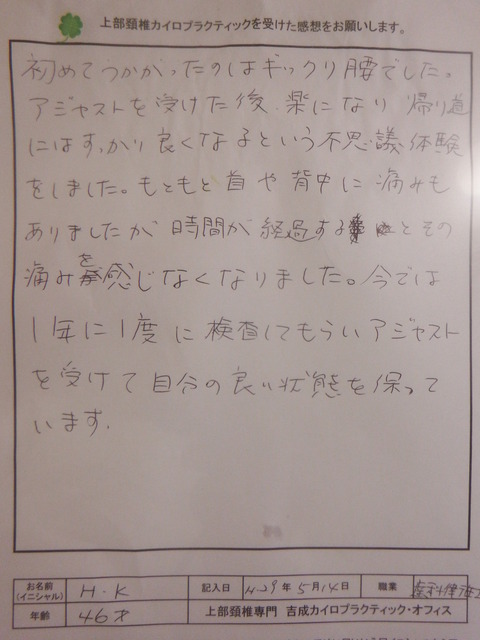 上部頚椎カイロプラクティックを受けた感想をお願いします。
初めてうかがったのはギックリ腰でした。
アジャストを受けた後、楽になり 帰り道
にはすっかり良くなるという不思議体験
をしました。もともと首や背中に痛みも
ありましたが 時間が経過するとその
痛みを感じなくなりました。今では
1年に1度に検査してもらいアジャスト
を受けて自分の良い状態を保って
います。
お名前 (イニシャル) H.K 記入日 H-29年5月14日 職業 歯科衛生士
年齢 46才 上部頚椎専門 吉成カイロプラクティック・オフィス